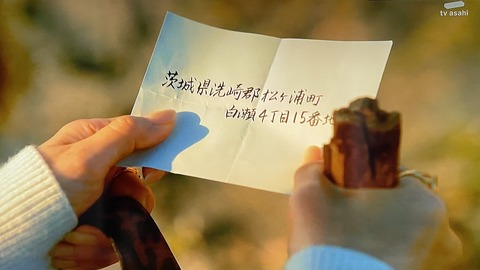 tv asahi
茨城県洗崎郡松ヶ浦町
白瀬4丁目15番地